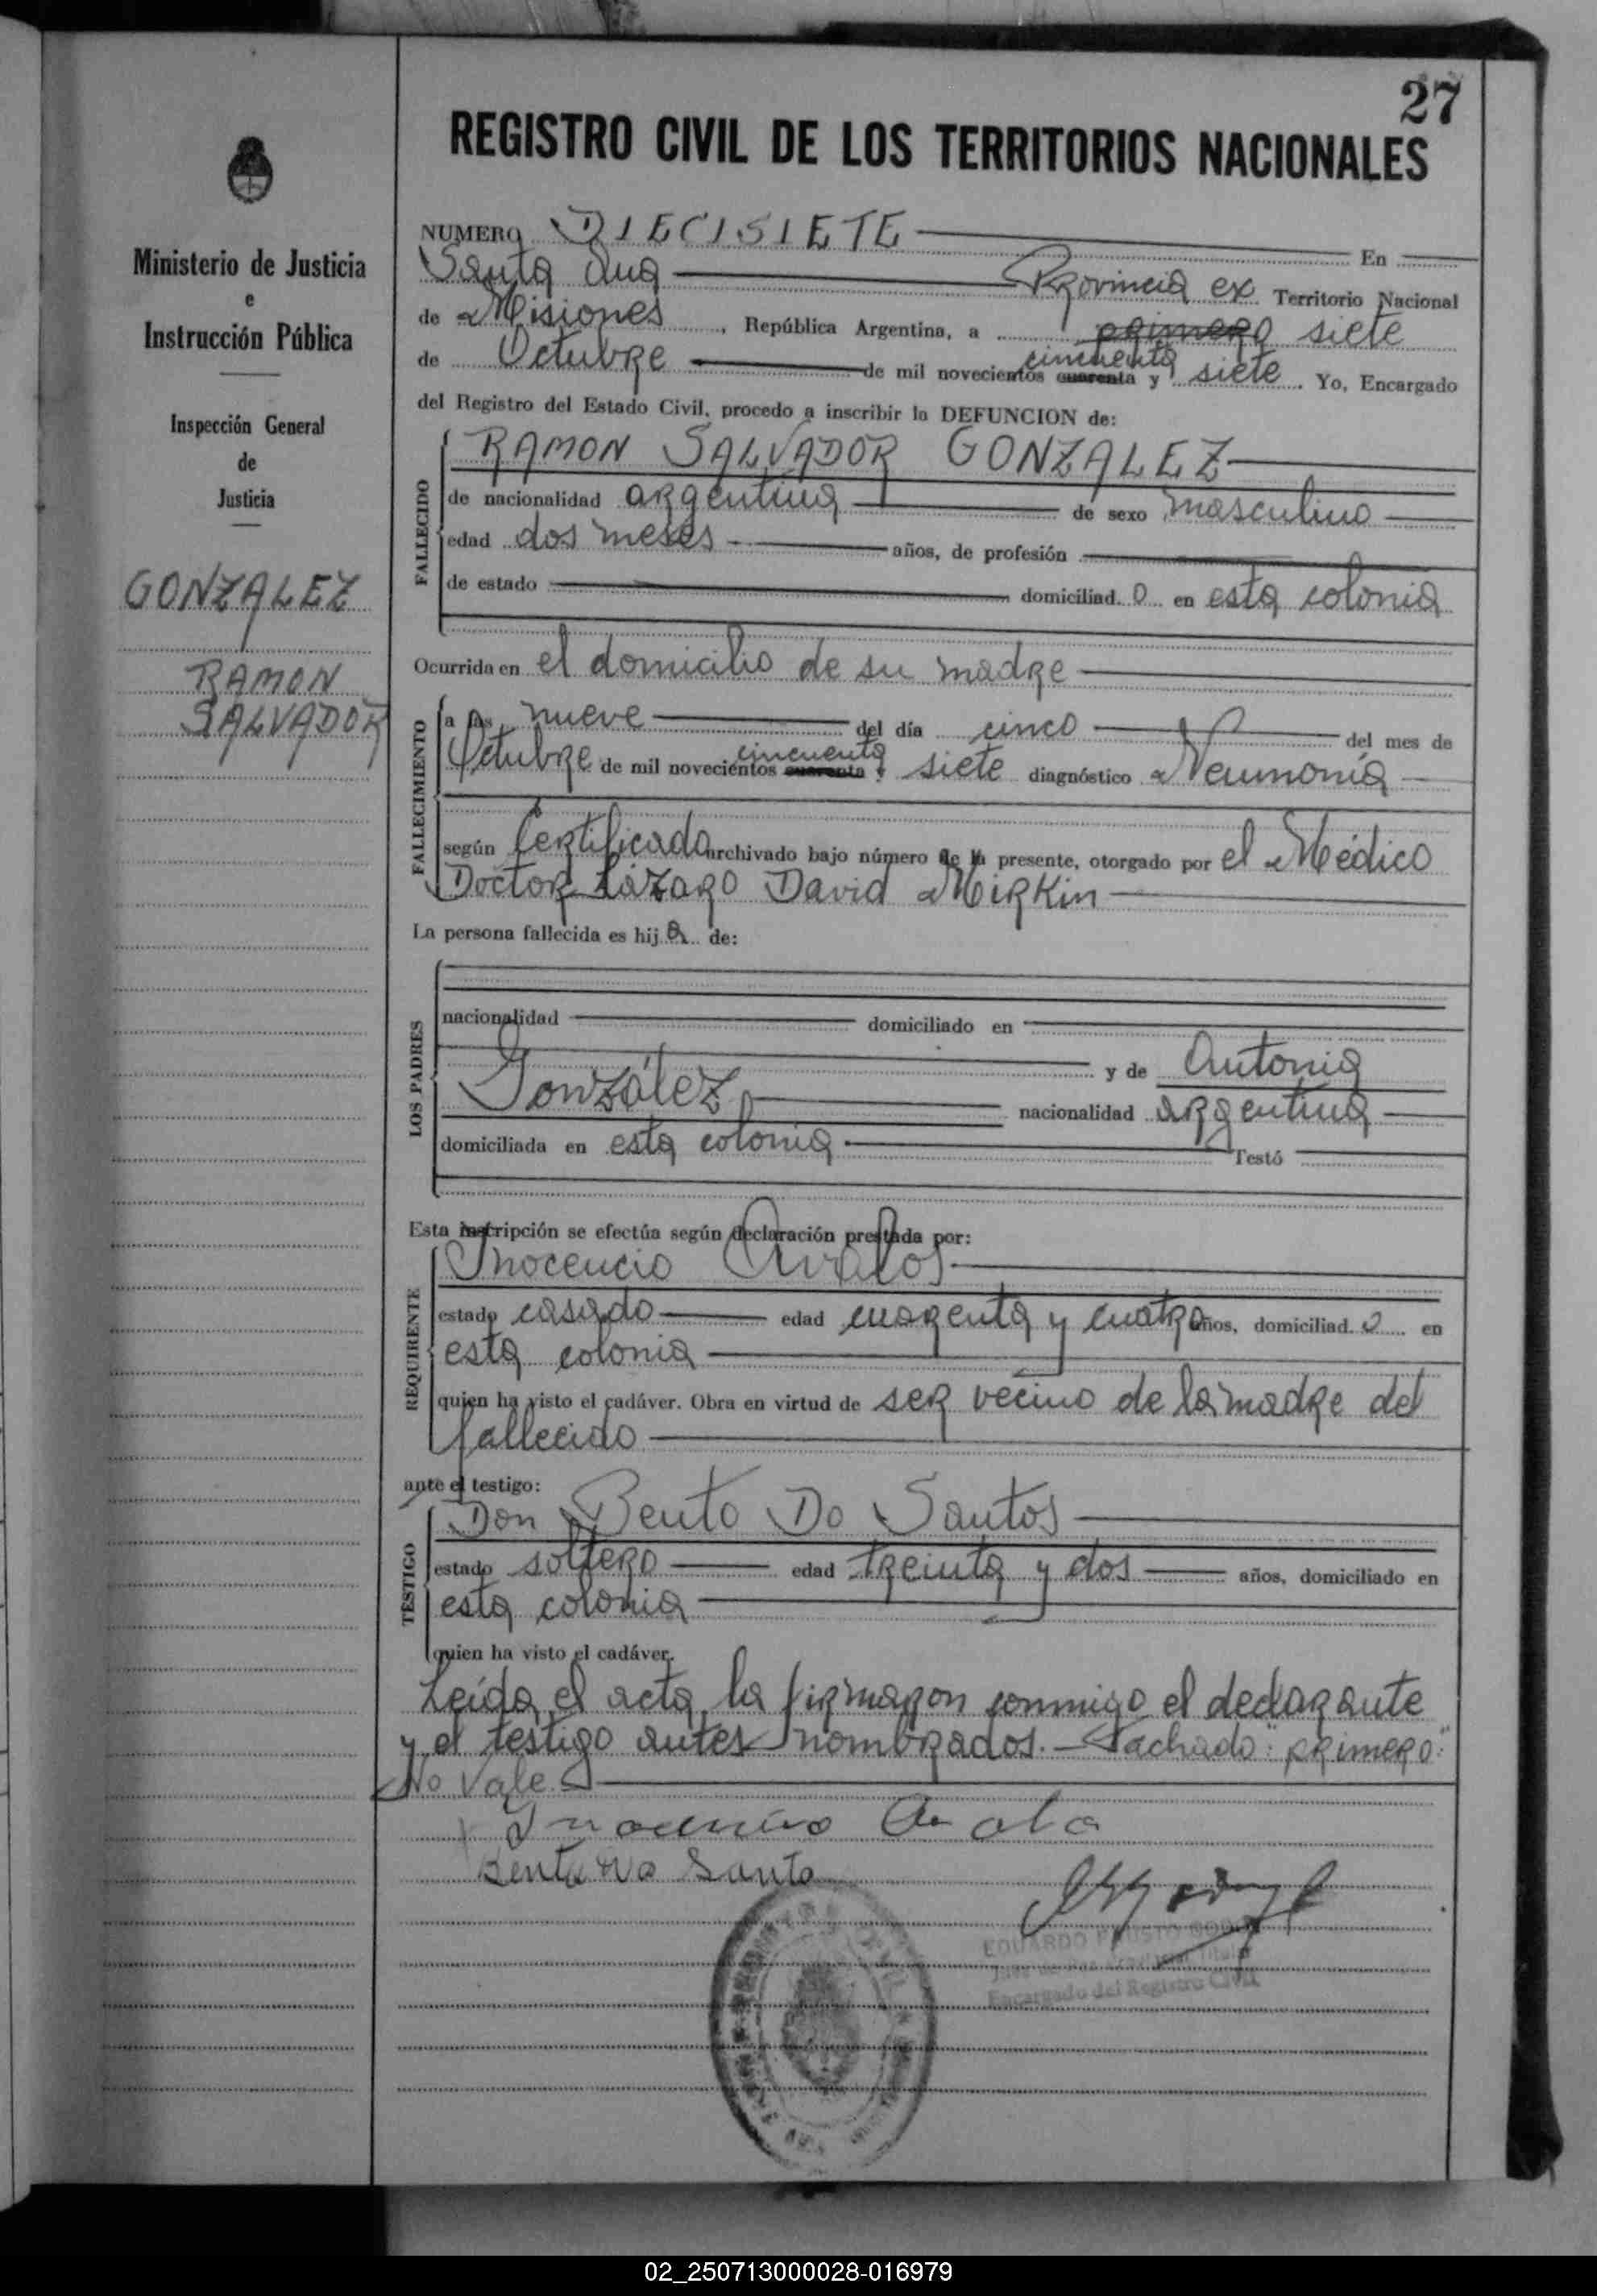 27
REGISTRO CIVIL DE LOS TERRITORIOS NACIONALES
Ministerio de Justicia
e
Instrucción Pública
Inspección General
de
Justicia
GONZALEZ
RAMON
SALVADOR
NUMERO DIECISIETE En
Santa Ana Provincia ex Territorio Nacional
de Misiones, República Argentina, a primero siete
de Octubre de mil novecientos cuarenta cincuenta y siete. Yo, Encargado
del Registro del Estado Civil, procedo a inscribir la DEFUNCION de:
FALLECIDO
RAMON SALVADOR GONZALEZ
de nacionalidad argentina de sexo masculino
edad dos meses años, de profesión
de estado domiciliad o en esta colonia
Ocurrida en el domicilio de su madre
FALLECIMIENTO
a las nueve del día cinco del mes de
Octubre de mil novecientos cuarenta cincuenta y siete diagnóstico Neumonía
según Certificado archivado bajo número de la presente, otorgado por el Médico
Doctor Lázaro David Mirkin
La persona fallecida es hij o de:
LOS PADRES
nacionalidad domiciliado en
y de Antonia
González nacionalidad argentina
domiciliada en esta colonia Testó
Esta inscripción se efectúa según declaración prestada por:
REQUIRENTE
Inocencio Avalos
estado casado edad cuarenta y cuatro años, domiciliad o en
esta colonia
quien ha visto el cadáver. Obra en virtud de ser vecino de la madre del
fallecido
ante el testigo:
TESTIGO
Don Bento Do Santos
estado soltero edad treinta y dos años, domiciliado en
esta colonia
quien ha visto el cadáver.
Leída el acta, la firmaron conmigo el declarante
y el testigo antes nombrados.- Tachado: "primero":
No Vale.-
Bento Do Santo
EDUARDO FAUSTO
Encargado del Registro Civil
02_250713000028-016979